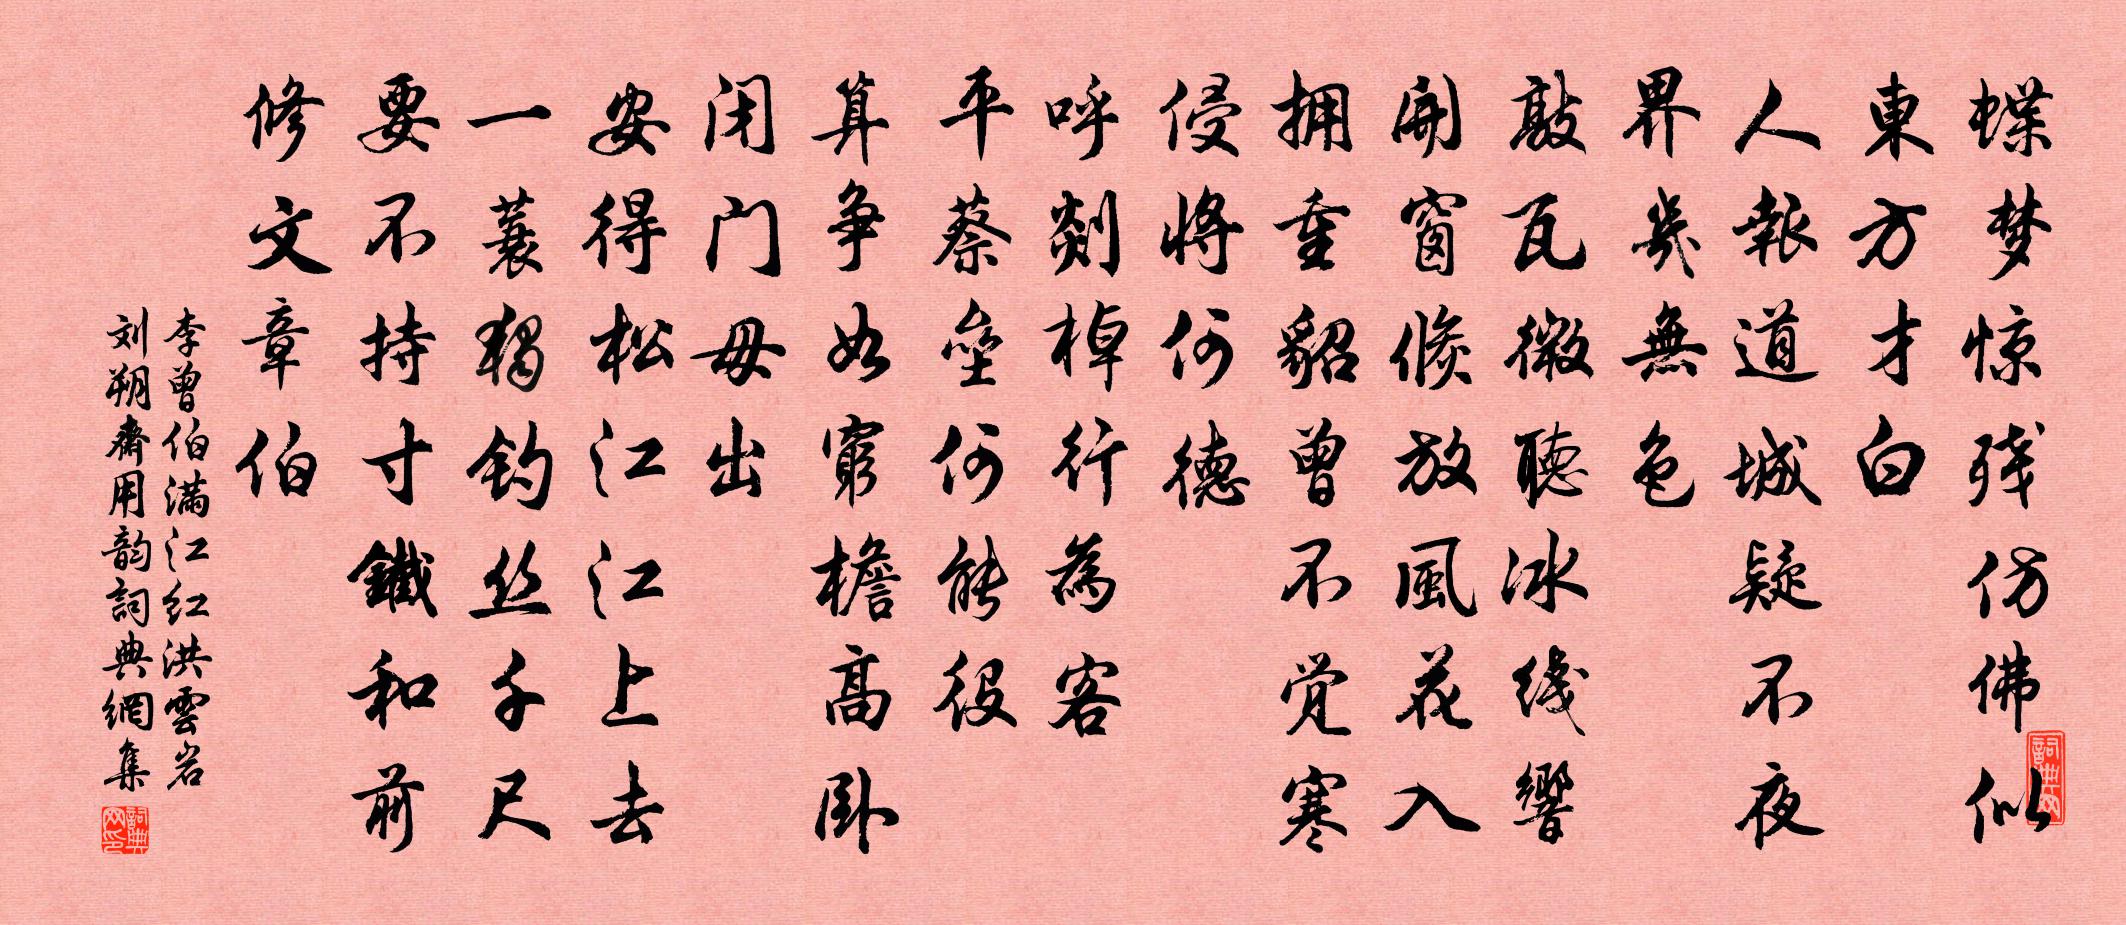 蝶梦惊残仿佛似
東方才白
人報道城疑不夜
界幾無色
敲瓦微聽冰线響
開窗候放風花入
拥重貂曾不觉寒
侵将何德
呼剡棹行為客
平蔡壘何能役
算争如窮檐高卧
闭门毋出
安得松江江上去
一蓑獨钓丝千尺
要不持寸鐵和前
修文章伯
李曾伯满江红洪雲岩
刘朔齋用韵詞典網集
詞典网
詞典网印